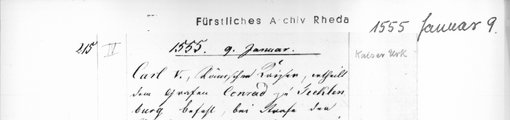 Fürstliches Archiv Rheda
1555 Januar 9.
215 II 1555. 9. Januar.
Kaiser Urk
Carl V., Römischer Kaiser, ertheilt
dem Grafen Conrad zu Tecklen
burg befehl, bei Strafe den